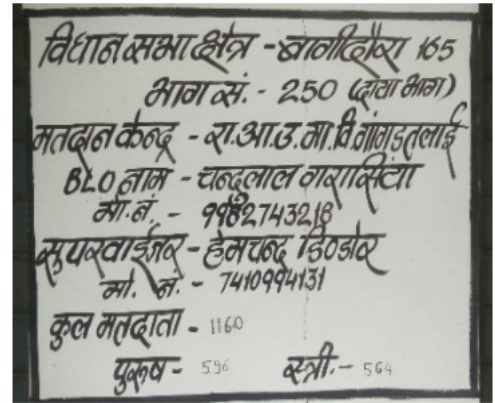 विधान सभा क्षेत्र - बागीदौरा 165
भाग सं. - 250 (दायां भाग)
मतदान केन्द्र - रा.आ.उ.मा.वि.गांगडतलाई
BLO नाम - चन्दुलाल वारासिंया
मो.नं. - 9982743218
सुपरवाईजर - हेमचन्द डिण्डोर
मो. नं. - 7410994131
कुल मतदाता - 1160
पुरूष - 596 स्त्री. - 564